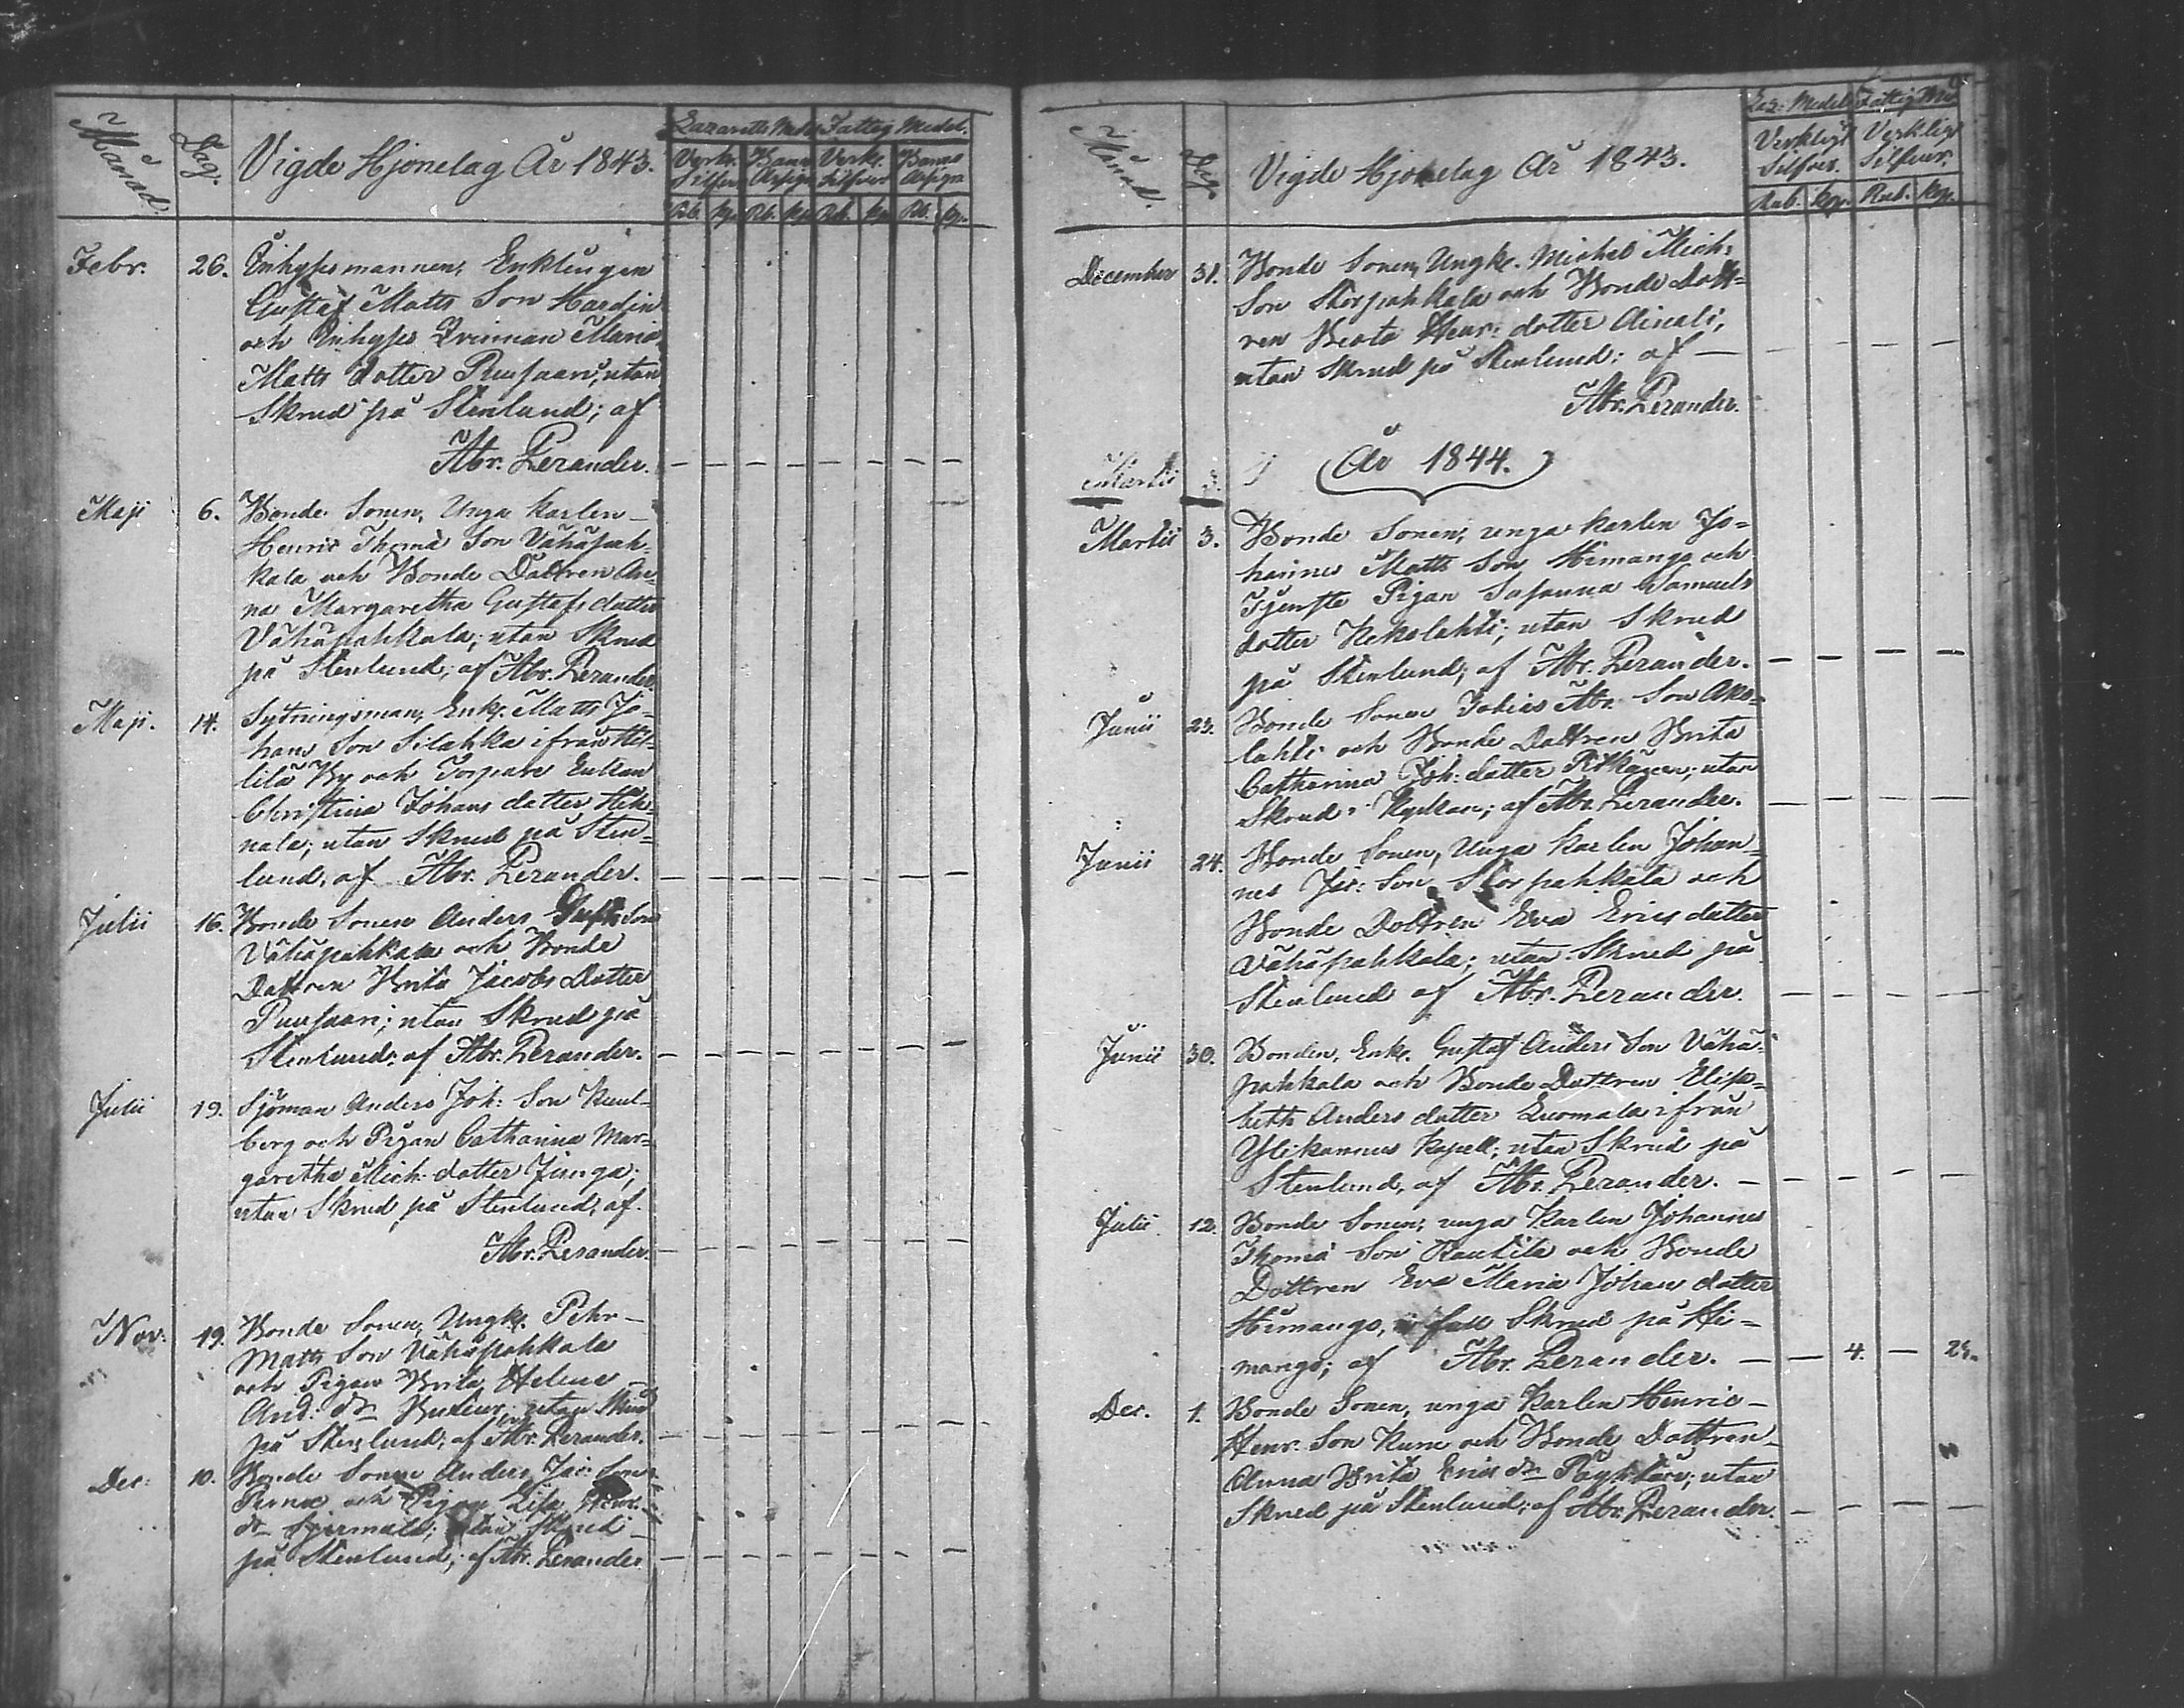 Månad. Dag. Vigde Hjonelag År 1843. Lazaretts Medel Fattig Medel.
Verkl. Silfver Banco Assign. Verkl. Silfver Banco Assign.
Rb. kp. Rb. kp. Rb. kp. Rb. kp.
Febr. 26. Inhyses mannen, Enklingen
Gustaf Matts Son Hardin
och Inhyses Qvinnan Maria
Matts dotter Ruusaari, utan
Skrud på Stenlund; af
Abr. Lerander. — — — — — — — —
Maji 6. Bonde Sonen, Unga Karlen —
Henric Thomæ Son Vähäpah-
kala och Bonde Dottren An-
na Margaretha Gustafs dotter
Vähäpahkala; utan Skrud
på Stenlund; af Abr. Lerander.
Maji. 14. Sytningsman, Enkl. Matts Jo-
hans Son Silahka ifrån
lilä By och Torpare Enkan
Christina Johans dotter
nala; utan Skrud på Sten-
lund, af Abr. Lerander. — — — — — — — —
Julii 16. Bonde Sonen Anders Gust. Son
Vähäpahkala och Bonde
Dottren Brita Jacobs Dotter
Puusaari; utan Skrud på
Stenlund; af Abr. Lerander. — — — — — — — —
Julii 19. Sjöman Anders Joh: Son Kuul-
berg och Pigan Catharina Mar-
garetha Mich: dotter Junga;
utan Skrud på Stenlund, af
Abr. Lerander. — — — — — — — —
Nov: 19. Bonde Sonen, Ungk. Pehr —
Matts Son Vähäpahkala
och Pigan Brita Helena —
And: dr utan Skrud
på Stenlund; af Abr. Lerander. — — — — — — — —
Dec: 10. Bonde Sonen Anders Jac: Son
och Pigan Lisa Henr.
dr utan Skrud
på Stenlund; af Abr. Lerander — — — — — — — —
Månad. Dag. Vigde Hjonelag År 1843. Laz: Medel Fattig Med.
Verkligt Silfver. Verkligt Silfver.
Rub. kop. Rub. kop.
December 31. Bonde Sonen, Ungk. Michel Mich:
Son Storpahkala och Bonde Dott-
ren Beata Henr: dotter Ainali,
utan Skrud på Stenlund: af — — — — —
Abr. Lerander.
Martii 3. (År 1844.)
Martii 3. Bonde Sonen, unga karlen Jo-
hannes Matts Son Himango och
Tjenste Pigan Susanna Samuels
dotter Kekolahti; utan Skrud
på Stenlund; af Abr. Lerander. — — — —
Junii 23. Bonde Sonen Tobias Abr. Son Ako-
lahti och Bonde Dottren Brita
Catharina Joh: dotter Pitkänen; utan
Skrud i Kyrkan; af Abr. Lerander. — — — —
Junii 24. Bonde Sonen, Unga Karlen Johan-
nes Jac: Son Storpahkala och
Bonde Dottren Eva Erics dotter
Vähäpahkala; utan Skrud på
Stenlund af Abr. Lerander. — — — —
Junii 30. Bonden, Enkl. Gustaf Anders Son Vähä-
pahkala och Bonde Dottren Elisa-
beth Anders dotter Luomala ifrån
Ylikannus Kapell; utan Skrud på
Stenlund, af Abr. Lerander. — — — — —
Julii 12. Bonde Sonen, unga Karlen Johannes
Thomæ Son Rautila och Bonde
Dottren Eva Maria Johans dotter
Himango, i full Skrud på Hi-
mango; af Abr. Lerander. — — 4. — 24.
Dec. 1. Bonde Sonen, unga Karlen Henric —
Henr. Son Kune och Bonde Dottren —
Anna Brita Erics dr; utan
Skrud på Stenlund; af Abr. Lerander. — — — —